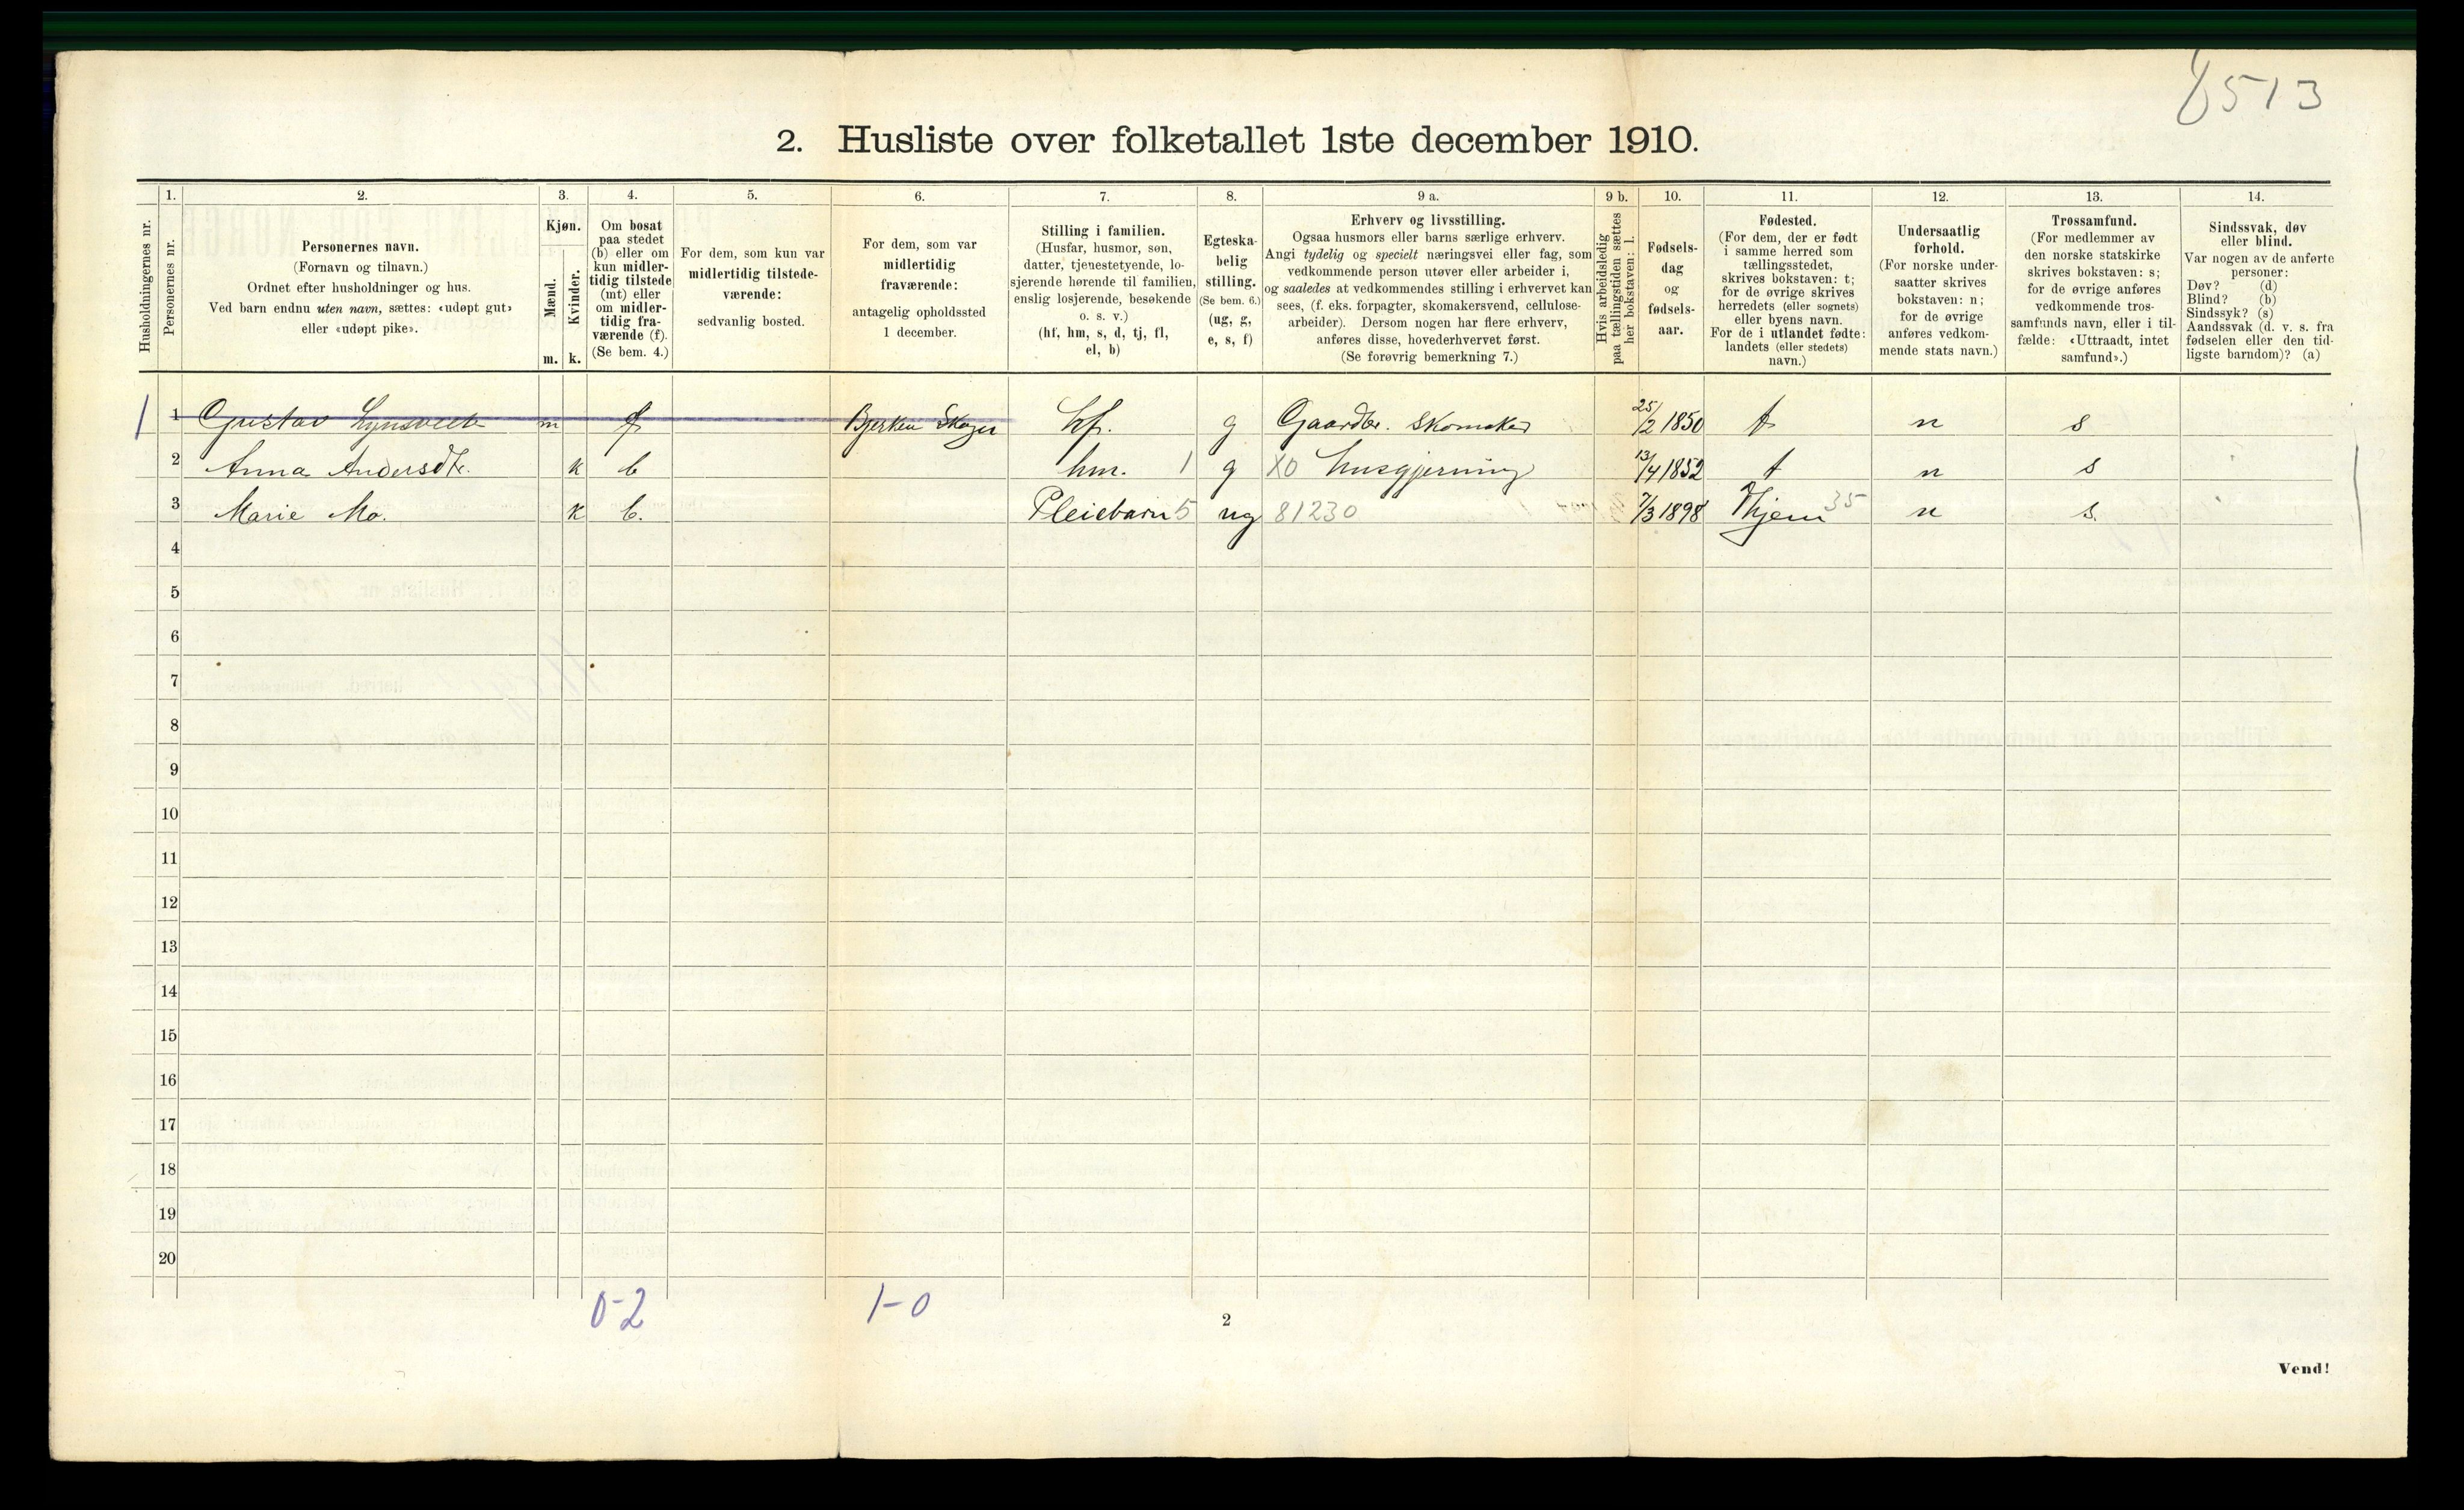 8513
2. Husliste over folketallet 1ste december 1910.
Husholdningernes nr.
1.
Personernes nr.
2.
Personernes navn.
(Fornavn og tilnavn.)
Ordnet efter husholdninger og hus.
Ved barn endnu uten navn, sættes: «udøpt gut»
eller «udøpt pike».
3.
Kjøn.
Mænd.
Kvinder.
m. k.
4.
Om bosat
paa stedet
(b) eller om
kun midler-
tidig tilstede
(mt) eller
om midler-
tidig fra-
værende (f).
(Se bem. 4.)
5.
For dem, som kun var
midlertidig tilstede-
værende:
sedvanlig bosted.
6.
For dem, som var
midlertidig
fraværende:
antagelig opholdssted
1 december.
7.
Stilling i familien.
(Husfar, husmor, søn,
datter, tjenestetyende, lo-
sjerende hørende til familien,
enslig losjerende, besøkende
o. s. v.)
(hf, hm, s, d, tj, fl,
el, b)
8.
Egteska-
belig
stilling.
(Se bem. 6.)
(ug, g,
e, s, f)
9 a.
Erhverv og livsstilling.
Ogsaa husmors eller barns særlige erhverv.
Angi tydelig og specielt næringsvei eller fag, som
vedkommende person utøver eller arbeider i,
og saaledes at vedkommendes stilling i erhvervet kan
sees, (f. eks. forpagter, skomakersvend, cellulose-
arbeider). Dersom nogen har flere erhverv,
anføres disse, hovederhvervet først.
(Se forøvrig bemerkning 7.)
9 b.
Hvis arbeidsledig
paa tællingstiden sættes
her bokstaven: l.
10.
Fødsels-
dag
og
fødsels-
aar.
11.
Fødested.
(For dem, der er født
i samme herred som
tællingsstedet,
skrives bokstaven: t;
for de øvrige skrives
herredets (eller sognets)
eller byens navn.
For de i utlandet fødte:
landets (eller stedets)
navn.)
12.
Undersaatlig
forhold.
(For norske under-
saatter skrives
bokstaven: n;
for de øvrige
anføres vedkom-
mende stats navn.)
13.
Trossamfund.
(For medlemmer av
den norske statskirke
skrives bokstaven: s;
for de øvrige anføres
vedkommende tros-
samfunds navn, eller i til-
fælde: «Uttraadt, intet
samfund».)
14.
Sindssvak, døv
eller blind.
Var nogen av de anførte
personer:
Døv? (d)
Blind? (b)
Sindssyk? (s)
Aandssvak (d. v. s. fra
fødselen eller den tid-
ligste barndom)? (a)
1 1 Gustav m f Bjerken Skoger hf. g Gaardbr. skomaker 25/2 1850 t n s
2 Anna Andersdtr. k b hm. 1 g X0 husgjerning 13/4 1852 t n s
3 Marie Mo. k b. Pleiebarn 5 ug 81230 7/3 1898 35 n s.
4
5
6
7
8
9
10
11
12
13
14
15
16
17
18
19
20
0-2 1-0
2
Vend!